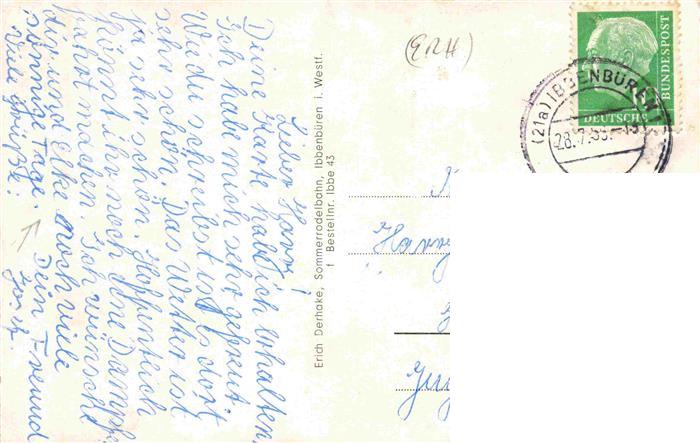 Lieber Harry!
Deine Karte hab ich erhalten.
Ich habe mich sehr gefreut.
Wie du schreibst ist es dort
sehr schön. Das Wetter ist
ja sehr schön. Hoffentlich
könnt ihr noch eine Dampf
fahrt machen. Ich wünsche
dir und Elke noch viele
sonnige Tage. Dein Freund
Viele Grüße!
Erich Derhake, Sommerrodelbahn, Ibbenbüren i. Westf.
f Bestellnr. Ibbe 43
DEUTSCHE
BUNDESPOST
(21a) IBBENBÜREN
28.7.
Harry